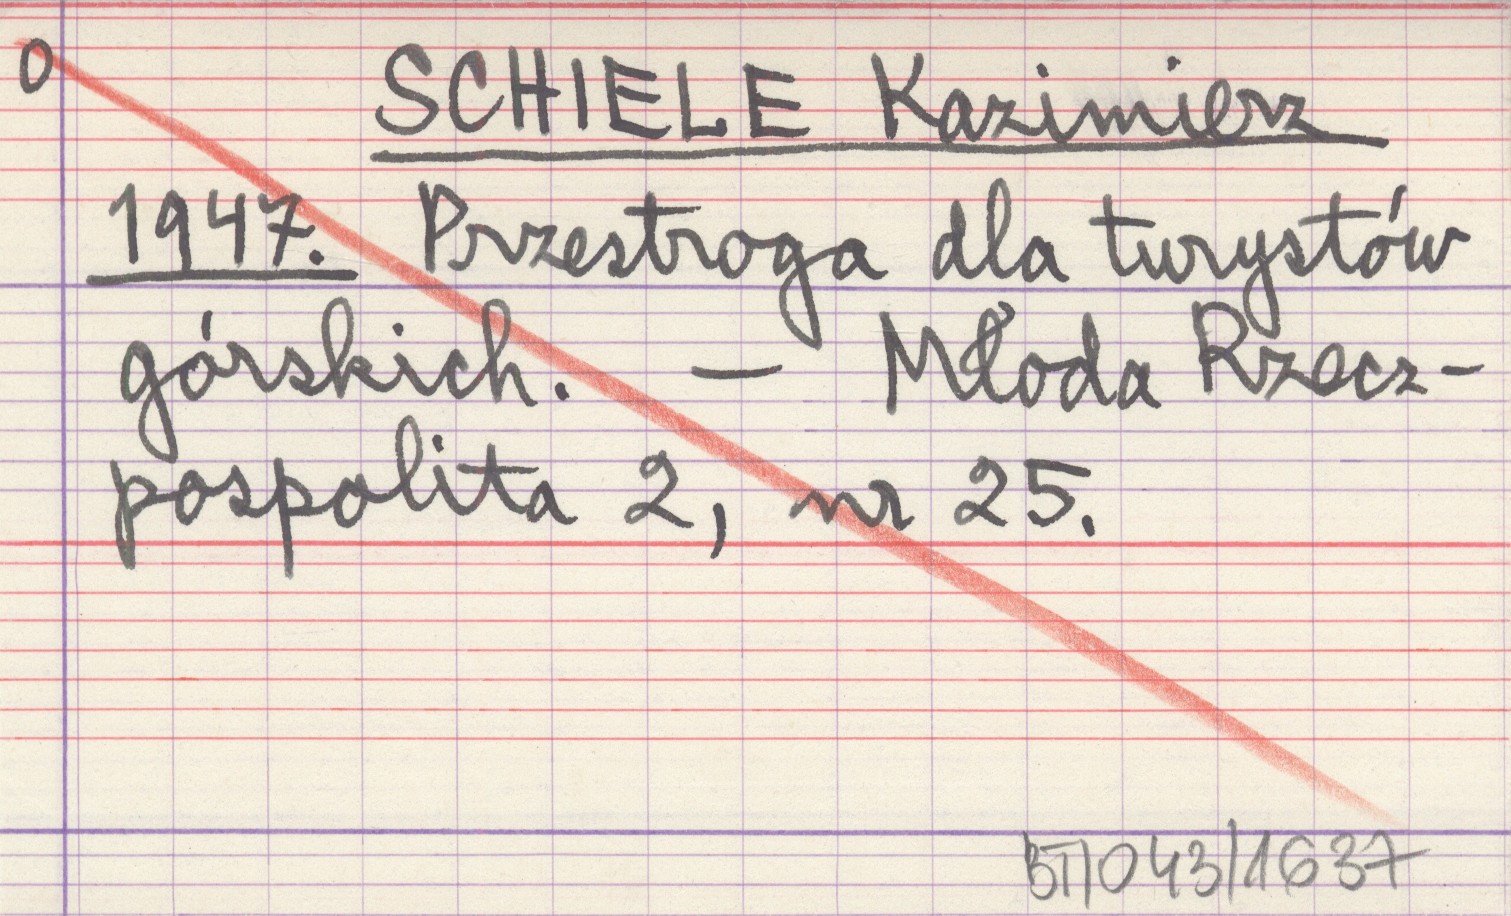 0
SCHIELE Kazimierz
1947. Przestroga dla turystów
górskich. — Młoda Rzecz-
pospolita 2, nr 25.
BT/043/1637